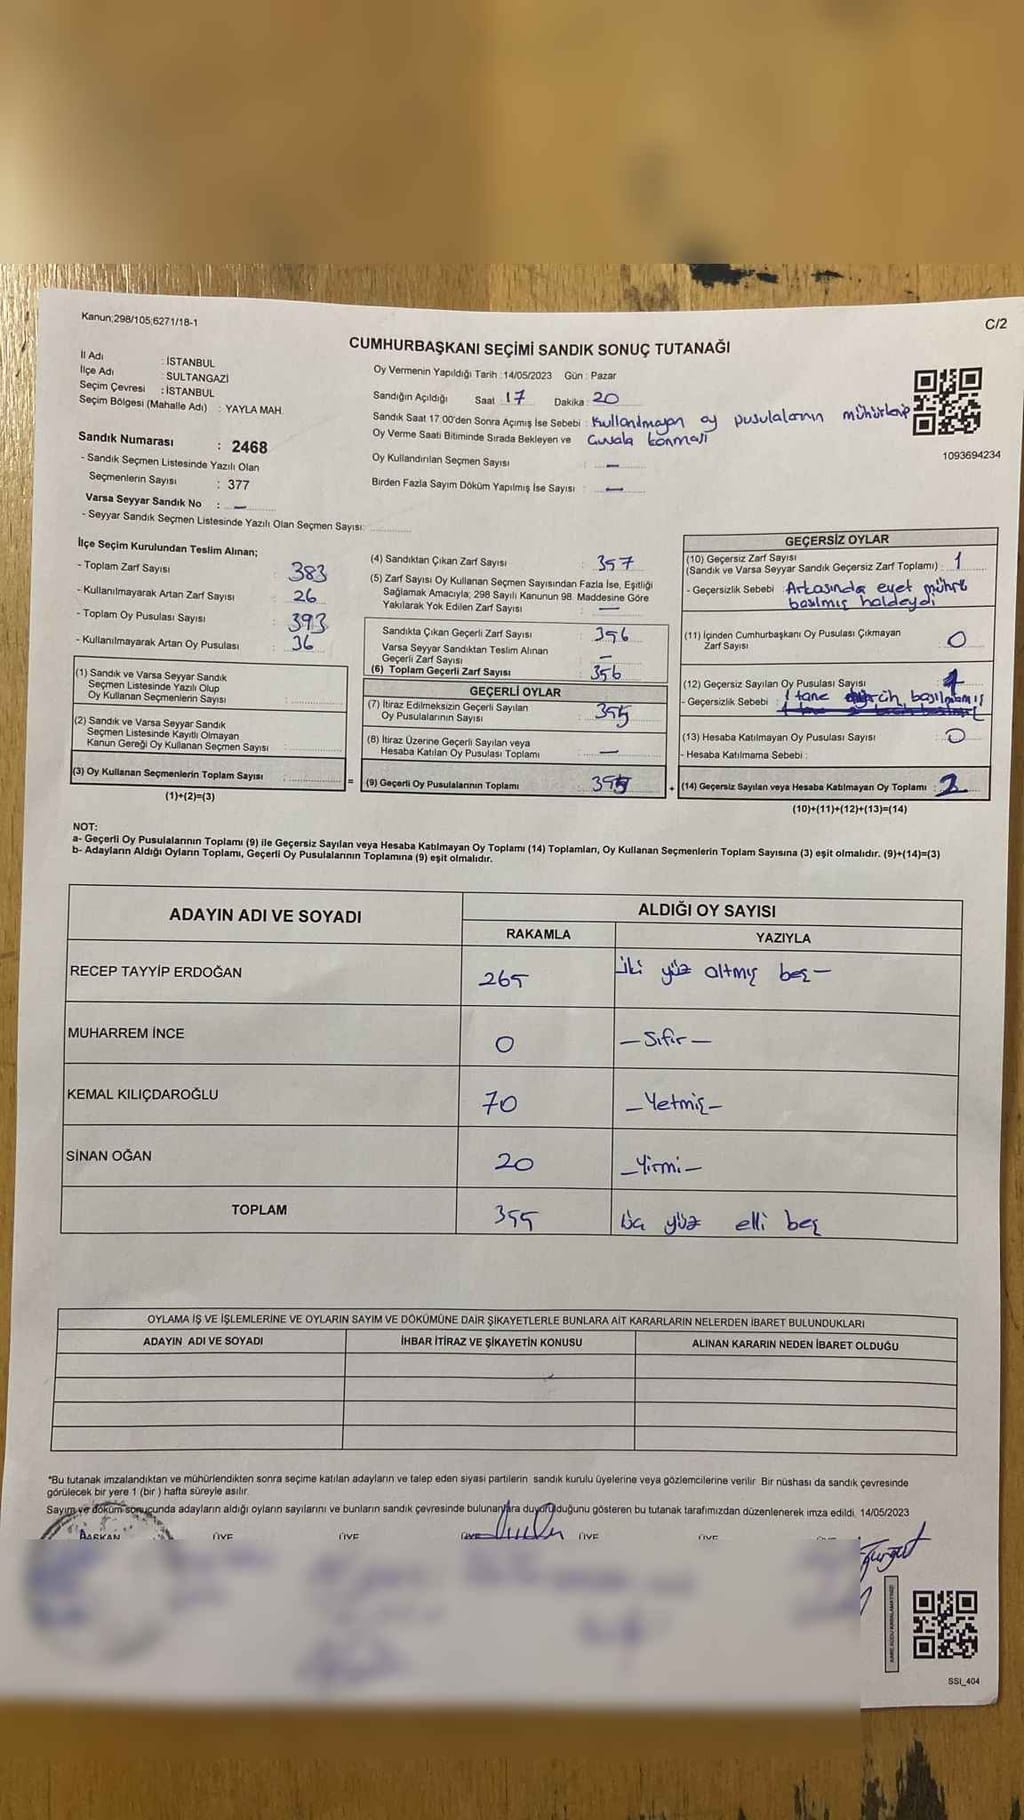 Kanun;298/105;6271/18-1
C/2
CUMHURBAŞKANI SEÇİMİ SANDIK SONUÇ TUTANAĞI
İl Adı : İSTANBUL
İlçe Adı : SULTANGAZİ
Seçim Çevresi : İSTANBUL
Seçim Bölgesi (Mahalle Adı) : YAYLA MAH.
Sandık Numarası : 2468
- Sandık Seçmen Listesinde Yazılı Olan
Seçmenlerin Sayısı : 377
Varsa Seyyar Sandık No : —
- Seyyar Sandık Seçmen Listesinde Yazılı Olan Seçmen Sayısı:
Oy Vermenin Yapıldığı Tarih :14/05/2023 Gün : Pazar
Sandığın Açıldığı Saat 17 Dakika 20
Sandık Saat 17.00'den Sonra Açımış İse Sebebi : Kullanılmayan oy pusulalarının mühürlenip
Oy Verme Saati Bitiminde Sırada Bekleyen ve Çuvala konması
Oy Kullandırılan Seçmen Sayısı : —
Birden Fazla Sayım Döküm Yapılmış İse Sayısı : —
1093694234
İlçe Seçim Kurulundan Teslim Alınan;
- Toplam Zarf Sayısı : 383
- Kullanılmayarak Artan Zarf Sayısı : 26
- Toplam Oy Pusulası Sayısı : 393
- Kullanılmayarak Artan Oy Pusulası : 36
(1) Sandık ve Varsa Seyyar Sandık
Seçmen Listesinde Yazılı Olup
Oy Kullanan Seçmenlerin Sayısı :
(2) Sandık ve Varsa Seyyar Sandık
Seçmen Listesinde Kayıtlı Olmayan
Kanun Gereği Oy Kullanan Seçmen Sayısı :
(3) Oy Kullanan Seçmenlerin Toplam Sayısı :
(1)+(2)=(3)
(4) Sandıktan Çıkan Zarf Sayısı : 357
(5) Zarf Sayısı Oy Kullanan Seçmen Sayısından Fazla İse, Eşitliği
Sağlamak Amacıyla; 298 Sayılı Kanunun 98. Maddesine Göre
Yakılarak Yok Edilen Zarf Sayısı : —
Sandıkta Çıkan Geçerli Zarf Sayısı : 356
Varsa Seyyar Sandıktan Teslim Alınan
Geçerli Zarf Sayısı : —
(6) Toplam Geçerli Zarf Sayısı : 356
GEÇERLİ OYLAR
(7) İtiraz Edilmeksizin Geçerli Sayılan
Oy Pusulalarının Sayısı : 355
(8) İtiraz Üzerine Geçerli Sayılan veya
Hesaba Katılan Oy Pusulası Toplamı : —
= (9) Geçerli Oy Pusulalarının Toplamı : 355
GEÇERSİZ OYLAR
(10) Geçersiz Zarf Sayısı
(Sandık ve Varsa Seyyar Sandık Geçersiz Zarf Toplamı) : 1
- Geçersizlik Sebebi : Arkasında evet mührü
basılmış haldeydi
(11) İçinden Cumhurbaşkanı Oy Pusulası Çıkmayan
Zarf Sayısı : 0
(12) Geçersiz Sayılan Oy Pusulası Sayısı : 1
- Geçersizlik Sebebi : 1 tane tercih basılmamış
(13) Hesaba Katılmayan Oy Pusulası Sayısı : 0
- Hesaba Katılmama Sebebi :
+ (14) Geçersiz Sayılan veya Hesaba Katılmayan Oy Toplamı : 2
(10)+(11)+(12)+(13)=(14)
NOT:
a- Geçerli Oy Pusulalarının Toplamı (9) ile Geçersiz Sayılan veya Hesaba Katılmayan Oy Toplamı (14) Toplamları, Oy Kullanan Seçmenlerin Toplam Sayısına (3) eşit olmalıdır. (9)+(14)=(3)
b- Adayların Aldığı Oyların Toplamı, Geçerli Oy Pusulalarının Toplamına (9) eşit olmalıdır.
ADAYIN ADI VE SOYADI
ALDIĞI OY SAYISI
RAKAMLA YAZIYLA
RECEP TAYYİP ERDOĞAN 265 iki yüz altmış beş —
MUHARREM İNCE 0 — Sıfır —
KEMAL KILIÇDAROĞLU 70 — Yetmiş —
SİNAN OĞAN 20 — Yirmi —
TOPLAM 355 üç yüz elli beş
OYLAMA İŞ VE İŞLEMLERİNE VE OYLARIN SAYIM VE DÖKÜMÜNE DAİR ŞİKAYETLERLE BUNLARA AİT KARARLARIN NELERDEN İBARET BULUNDUKLARI
ADAYIN ADI VE SOYADI İHBAR İTİRAZ VE ŞİKAYETİN KONUSU ALINAN KARARIN NEDEN İBARET OLDUĞU
*Bu tutanak imzalandıktan ve mühürlendikten sonra seçime katılan adayların ve talep eden siyasi partilerin sandık kurulu üyelerine veya gözlemcilerine verilir. Bir nüshası da sandık çevresinde
görülecek bir yere 1 (bir ) hafta süreyle asılır.
Sayım ve döküm sonucunda adayların aldığı oyların sayılarını ve bunların sandık çevresinde bulunanlara duyurulduğunu gösteren bu tutanak tarafımızdan düzenlenerek imza edildi. 14/05/2023
BAŞKAN ÜYE ÜYE ÜYE ÜYE ÜYE
SSI_404